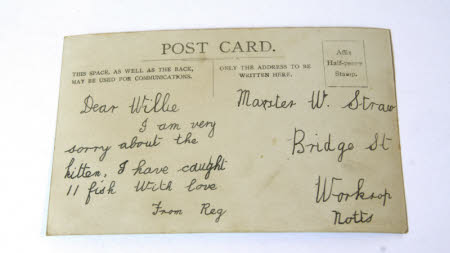 POST CARD.
THIS SPACE, AS WELL AS THE BACK,
MAY BE USED FOR COMMUNICATIONS.
ONLY THE ADDRESS TO BE
WRITTEN HERE.
Affix
Half-penny
Stamp.
Dear Willie
I am very
sorry about the
kitten. I have caught
11 fish With love
From Reg
Master W. Straw
Bridge St
Worksop
Notts